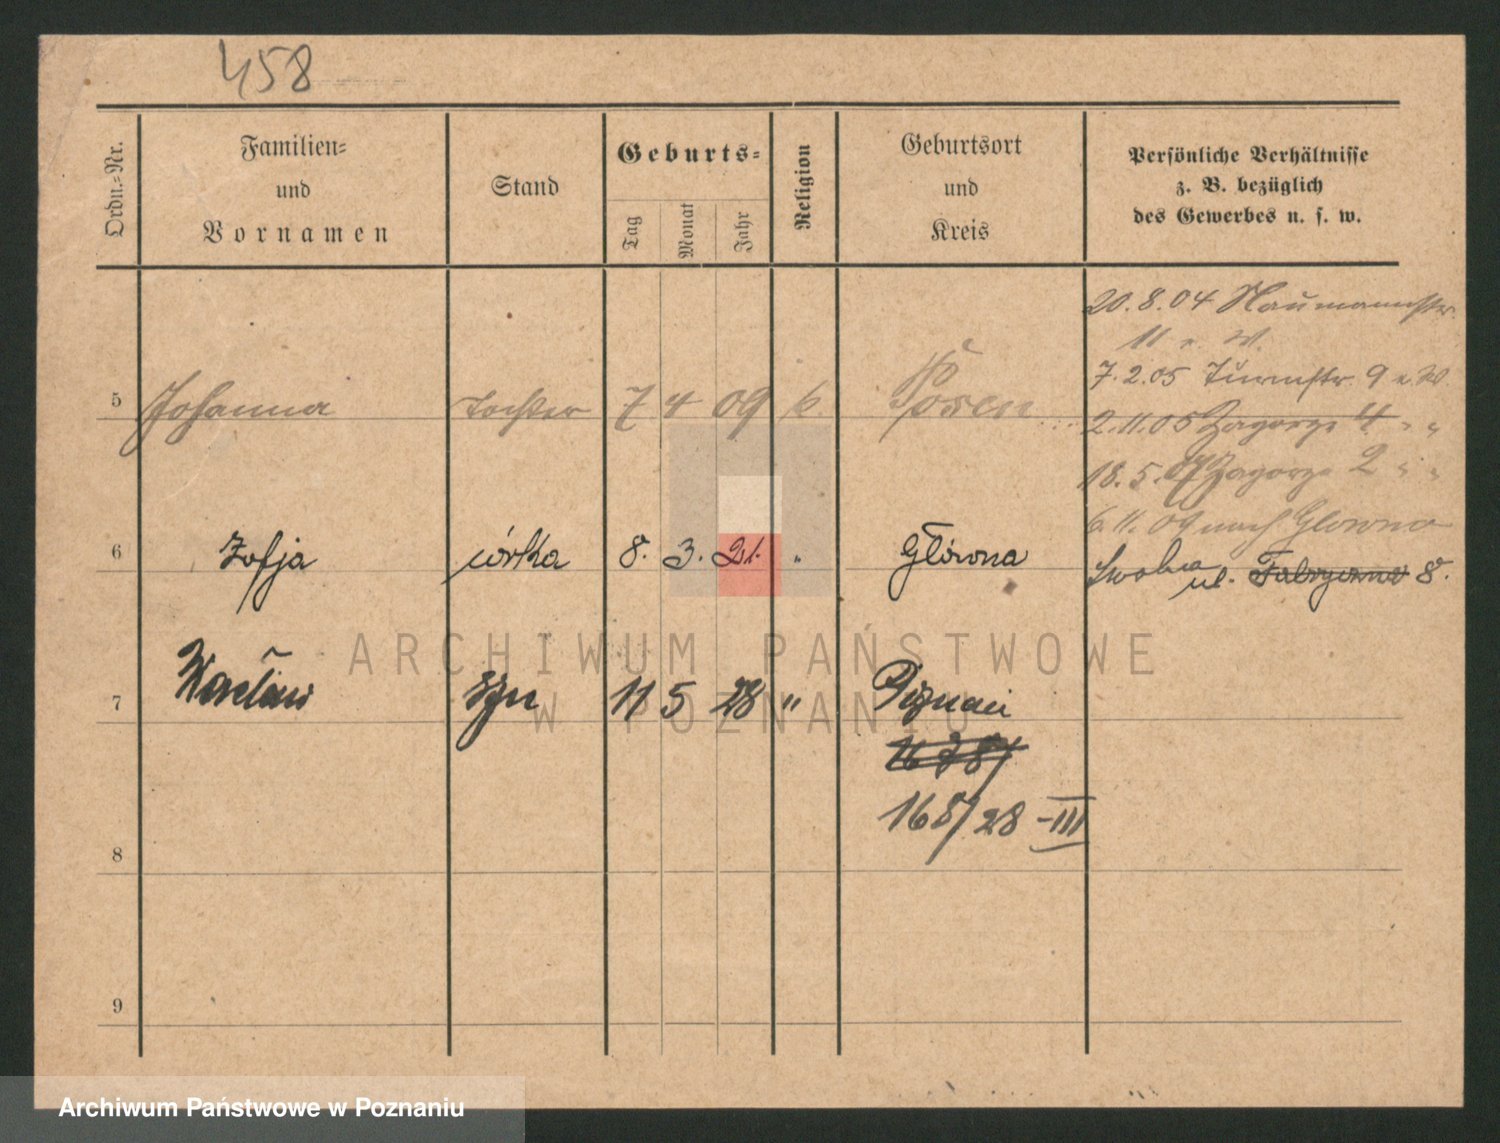 458
Ordn.-Nr.
Familien-
und
Vornamen
Stand
Geburts-
Tag
Monat
Jahr
Religion
Geburtsort
und
Kreis
Persönliche Verhältnisse
z. B. bezüglich
des Gewerbes u. s. w.
20.8.04 Naumannstr.
11 v. W.
7.2.05 Turmstr. 9 v. W.
5 Johanna Tochter 7 4 09 k. Posen
2.11.05 Zagorze 4 " "
18.5.07 Zagorze 2 " "
6.11.09 nach Glowno
6 Zofja córka 8. 3. 21. " Główna
Swobna ul. Fabryczna 8.
7 Wacław syn 11 5 28 " Poznań
168/28 -III
8
9
ARCHIWUM PAŃSTWOWE
W POZNANIU
Archiwum Państwowe w Poznaniu